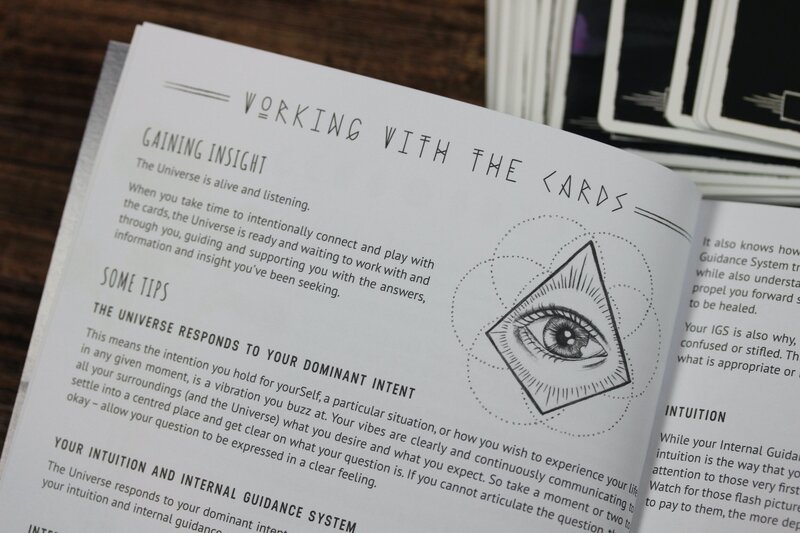 WORKING WITH THE CARDS
GAINING INSIGHT
The Universe is alive and listening.
When you take time to intentionally connect and play with
the cards, the Universe is ready and waiting to work with and
through you, guiding and supporting you with the answers,
information and insight you've been seeking.
SOME TIPS
THE UNIVERSE RESPONDS TO YOUR DOMINANT INTENT
This means the intention you hold for yourSelf, a particular situation, or how you wish to experience your life
in any given moment, is a vibration you buzz at. Your vibes are clearly and continuously communicating to
all your surroundings (and the Universe) what you desire and what you expect. So take a moment or two to
settle into a centred place and get clear on what your question is. If you cannot articulate the question
okay – allow your question to be expressed in a clear feeling.
YOUR INTUITION AND INTERNAL GUIDANCE SYSTEM
The Universe responds to your dominant
your intuition and internal
It also knows how
Guidance System
while also
propel you forward
to be healed.
Your IGS is also why,
confused or stifled.
what is appropriate or
INTUITION
While your Internal
intuition is the way that
attention to those very first
Watch for those flash
to pay to them, the more